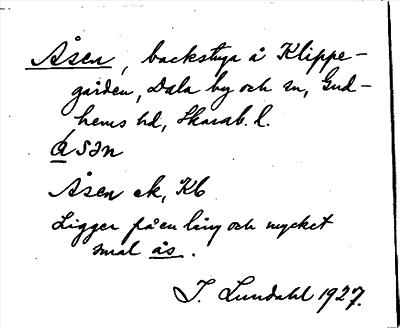 Åsen, backstuga å Klippe-
gården, Dala by och sn, Gud-
hems hd, Skarab. l.
åsən
Åsen ek, Kb
Ligger på en lång och mycket
smal ås.
I. Lundahl 1927.